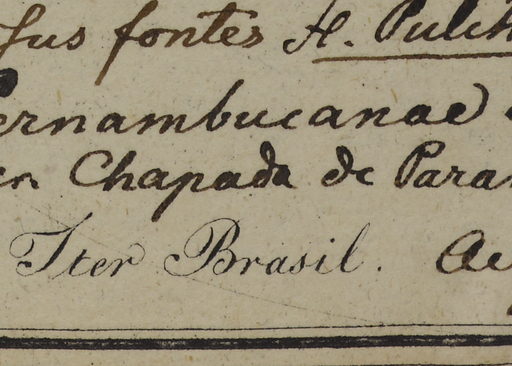 fontes H. Pulch
ernambucanae
Chapada de Para
Iter Brasil. Ae